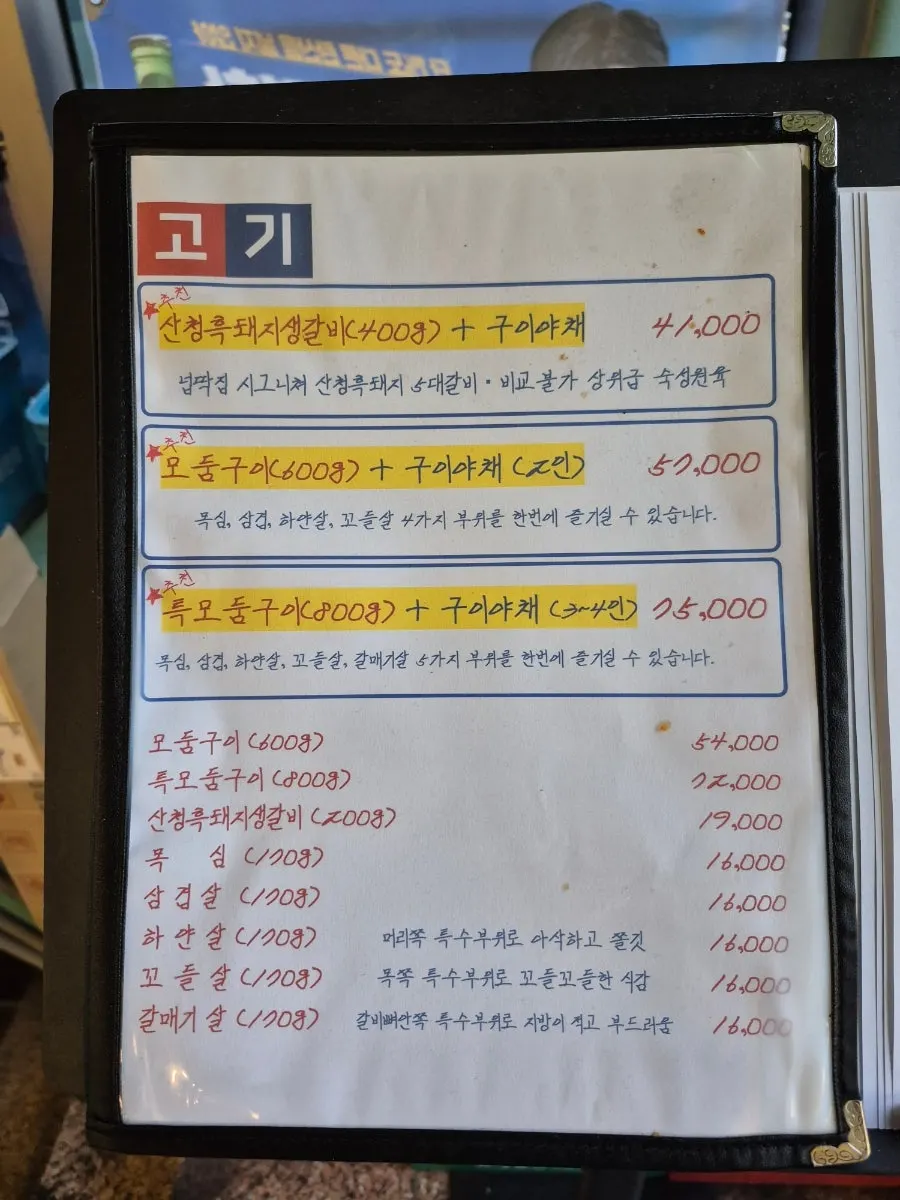 고기
★추천
산청흑돼지생갈비(400g) + 구이야채 41,000
넙딱집 시그니쳐 산청흑돼지 5대갈비 · 비교불가 상위급 숙성원육
★추천
모둠구이(600g) + 구이야채 (2인) 57,000
목심, 삼겹, 하얀살, 꼬들살 4가지 부위를 한번에 즐기실 수 있습니다.
★추천
특모둠구이(800g) + 구이야채 (3~4인) 75,000
목심, 삼겹, 하얀살, 꼬들살, 갈매기살 5가지 부위를 한번에 즐기실 수 있습니다.
모둠구이(600g) 54,000
특모둠구이(800g) 72,000
산청흑돼지생갈비(200g) 19,000
목 심 (170g) 16,000
삼겹살 (170g) 16,000
하얀살 (170g) 머리쪽 특수부위로 아삭하고 쫄깃 16,000
꼬들살 (170g) 목쪽 특수부위로 꼬들꼬들한 식감 16,000
갈매기살 (170g) 갈비뼈안쪽 특수부위로 지방이 적고 부드러움 16,000